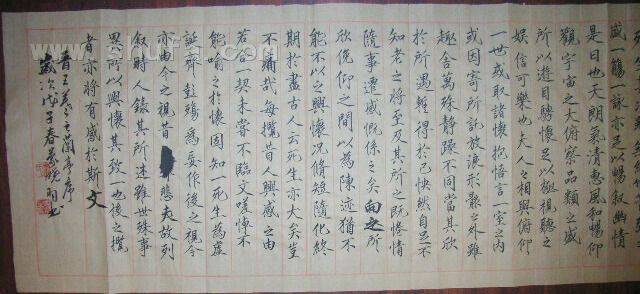 盛一觴一詠亦足以暢叙幽情
是日也天朗氣清惠風和暢仰
觀宇宙之大俯察品類之盛
所以遊目騁懷足以極視聽之
娛信可樂也夫人之相與俯仰
一世或取諸懷抱悟言一室之內
或因寄所託放浪形骸之外雖
趣舍萬殊靜躁不同當其欣
於所遇暫得於己怏然自足不
知老之將至及其所之既惓情
隨事遷感慨係之矣向之所
欣俛仰之間以為陳迹猶不
能不以之興懷況脩短隨化終
期於盡古人云死生亦大矣豈
不痛哉每攬昔人興感之由
若合一契未嘗不臨文嗟悼不
能喻之於懷固知一死生為虛
誕齊彭殤為妄作後之視今
亦由今之視昔悲夫故列
叙時人錄其所述雖世殊事
異所以興懷其致一也後之攬
者亦將有感於斯文
晉王羲之蘭亭序
歲次戊子春